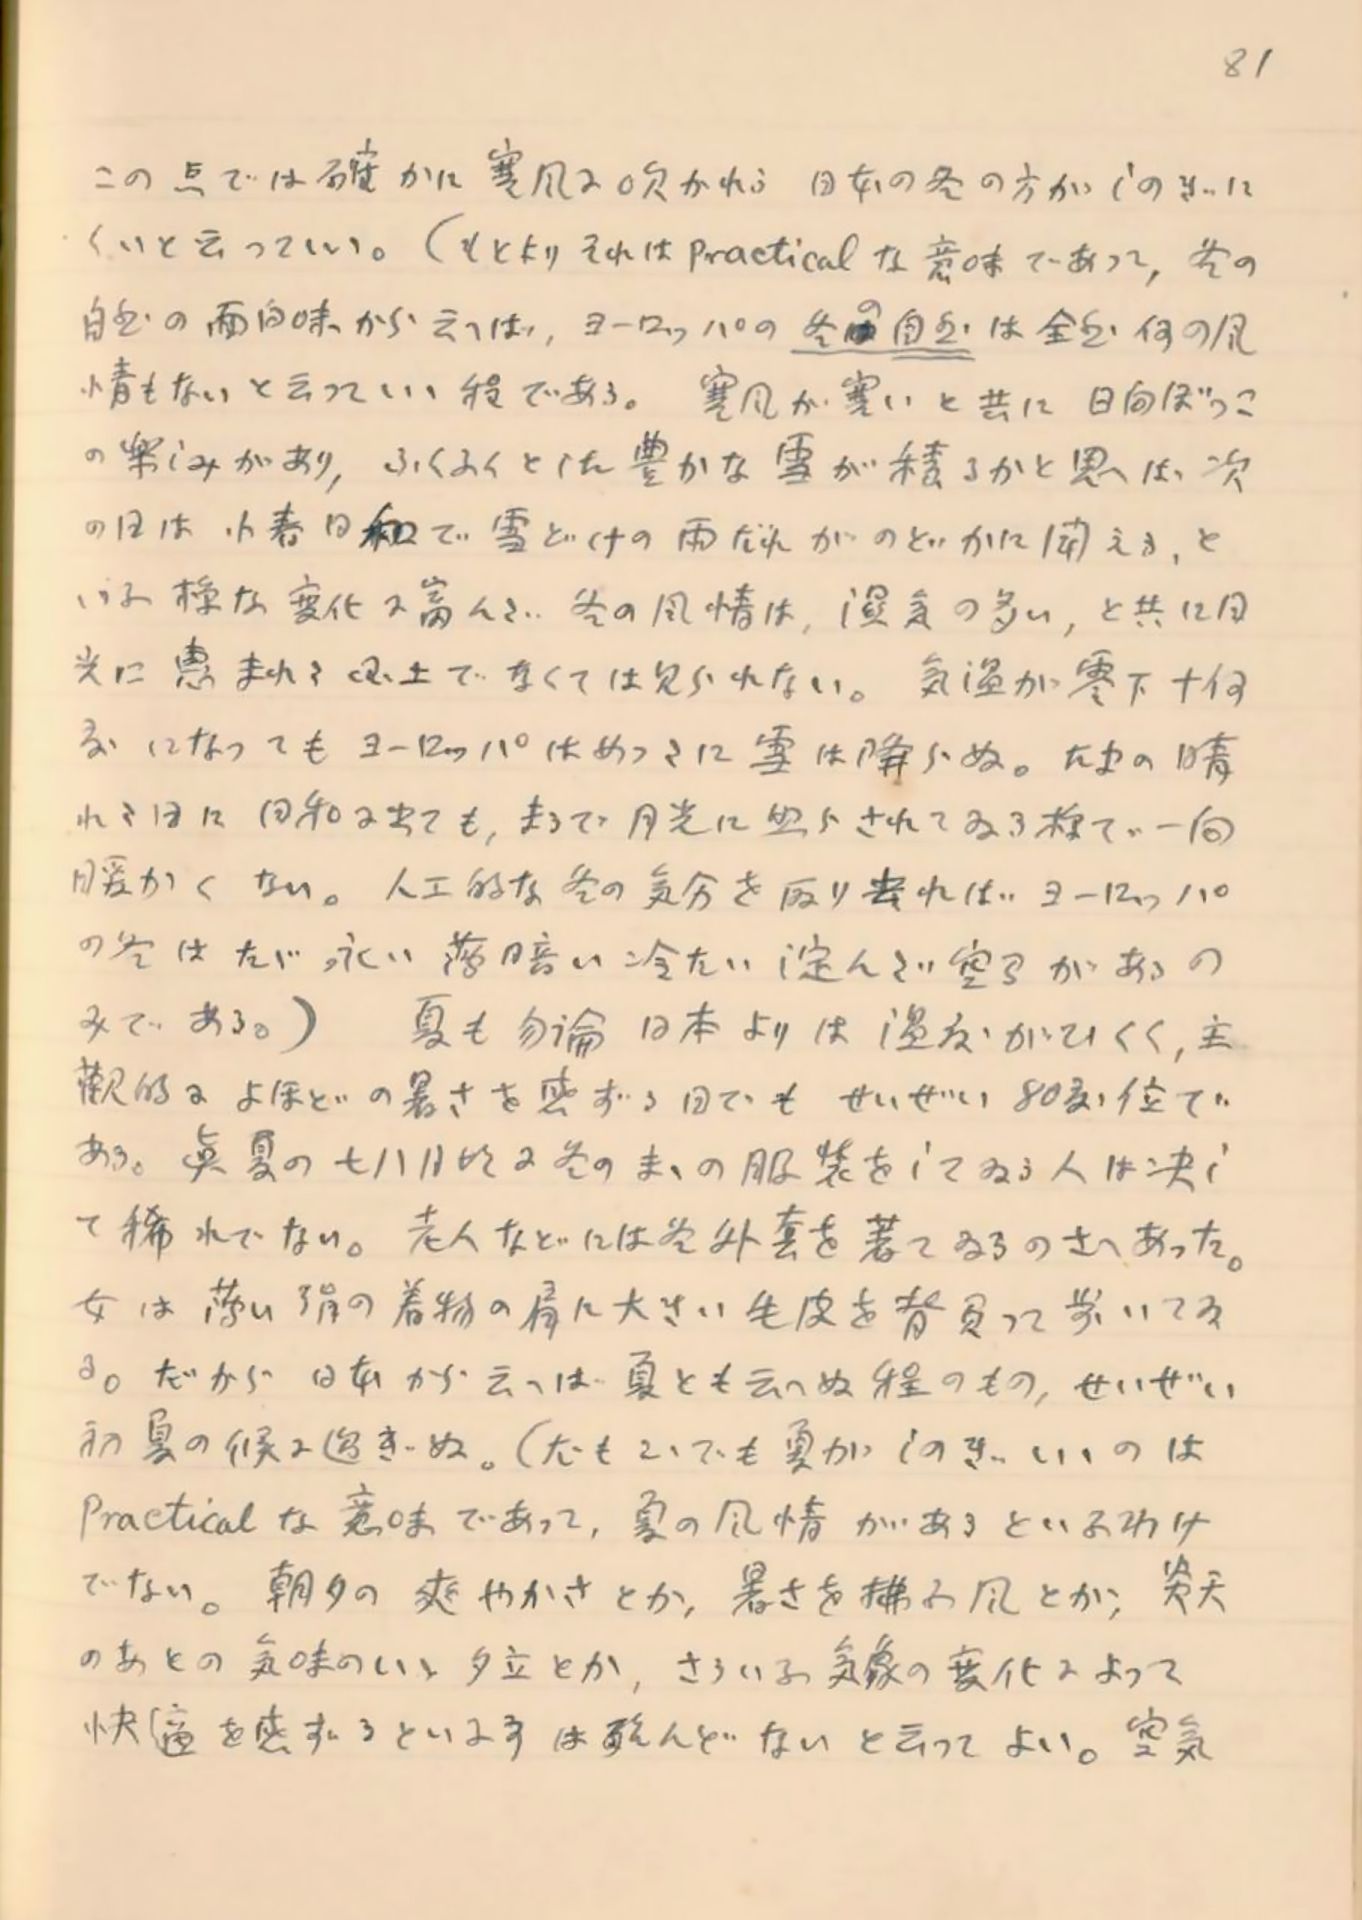 81
この点では確かに寒風に吹かれる 日本の冬の方がしのぎに
くいと云っていい。(もとよりそれは practical な意味であつて, 冬の
自然の面白味から云へば, ヨーロッパの冬の自然は全然何の風
情もないと云っていゝ程である。 寒風が寒いと共に日向ぼっこ
の楽しみがあり, ふくふくとした豊かな雪が積るかと思へば次
の日は小春日和で雪どけの雨だれがのどかに聞える, と
いふ様な変化に富んだ冬の風情は, 湿気の多い, と共に日
光に恵まれた風土でなくては見られない。 気温が零下十何
度になつてもヨーロッパはめつたに雪は降らぬ。たまの晴
れた日に日和に出ても, まるで月光に照らされてゐる様で一向
暖かくない。人工的な冬の気分を取り去ればヨーロッパ
の冬はたゞ永い薄暗い冷たい淀んだ空気があるの
みである。) 夏も勿論日本よりは温度がひくく, 主
観的によほどの暑さを感ずる日でもせいぜい80度位で
ある。眞夏の七八月頃に冬のまゝの服装をしてゐる人は決し
て稀れでない。老人などには冬外套を著てゐるのさへあった。
女は薄い絹の着物の肩に大きい毛皮を背負って歩いてゐ
る。だから日本から云へば夏とも云へぬ程のもの, せいぜい
初夏の候に過ぎぬ。(尤もこゝでも夏がしのぎいゝのは
Practical な意味であつて, 夏の風情があるといふわけ
でない。朝夕の爽やかさとか, 暑さを拂ふ風とか, 炎天
のあとの気味のいゝ夕立とか, さういふ気象の変化によつて
快適を感ずるといふ事は殆んどないと云つてよい。空気